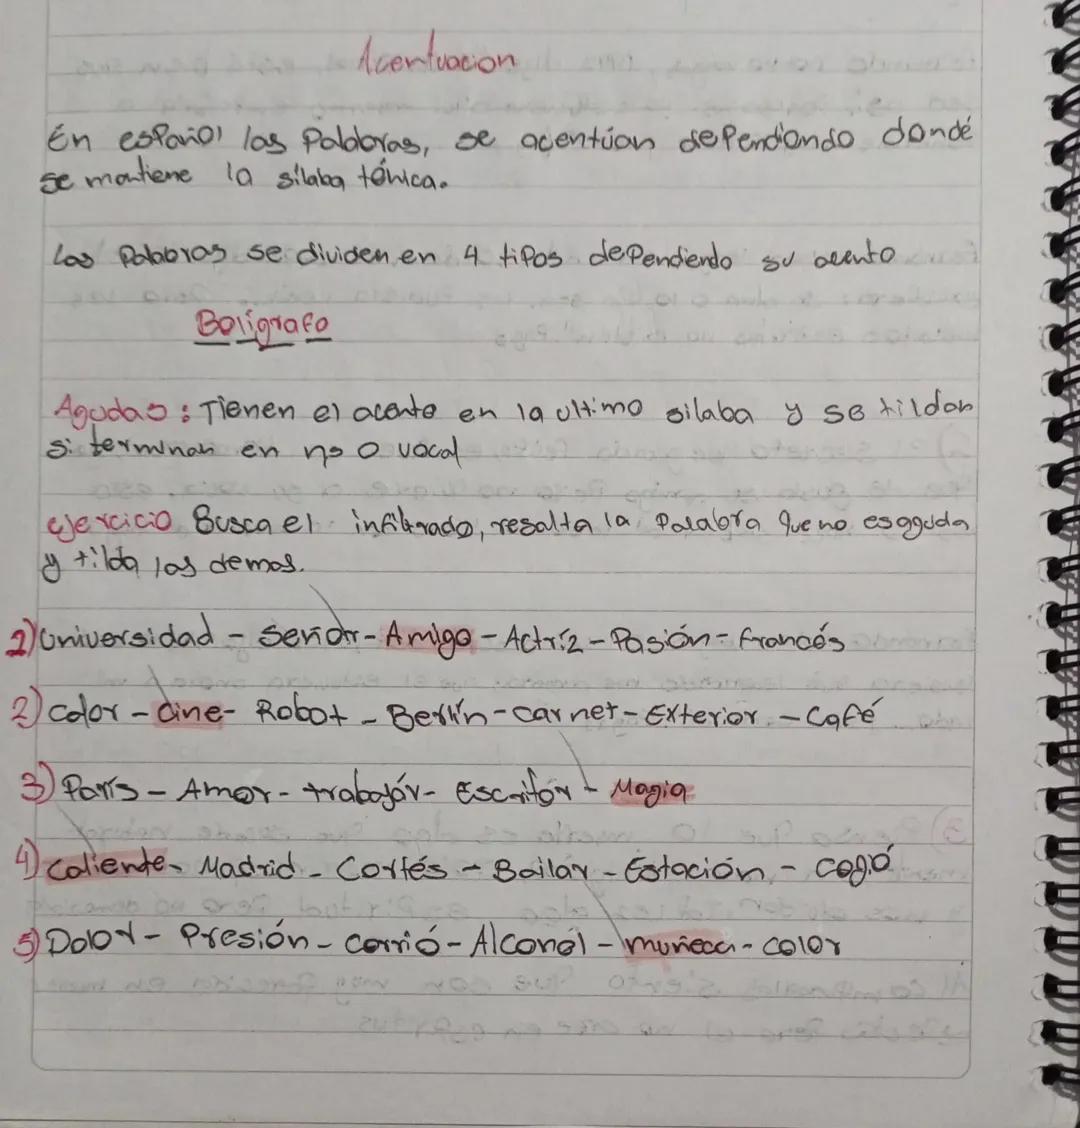 Acentuacion
En español las Palabras, se acentúan dePendiondo dondé
se mantiene la sílaba tónica.
Las Palabras se dividen en 4 tiPos dePendiendo su acento
Bolígrafo
Agudas: Tienen el acento en la ultimo silaba y se tildan
si terminan en n s o vocal
ejercicio Busca el infiltrado, resalta la Palabra que no es aguda
y tilda las demas.
1) Universidad - Señor - Amigo - Actríz - Pasión - francés
2) color - cine - Robot - Berlín - carnet - Exterior - Café
3) París - Amor - trabajár - Escritór - Magia
4) caliente - Madrid - Cortés - Bailar - Estación - cogió
5) Dolor - Presión - corrió - Alcohól - muñeca - color